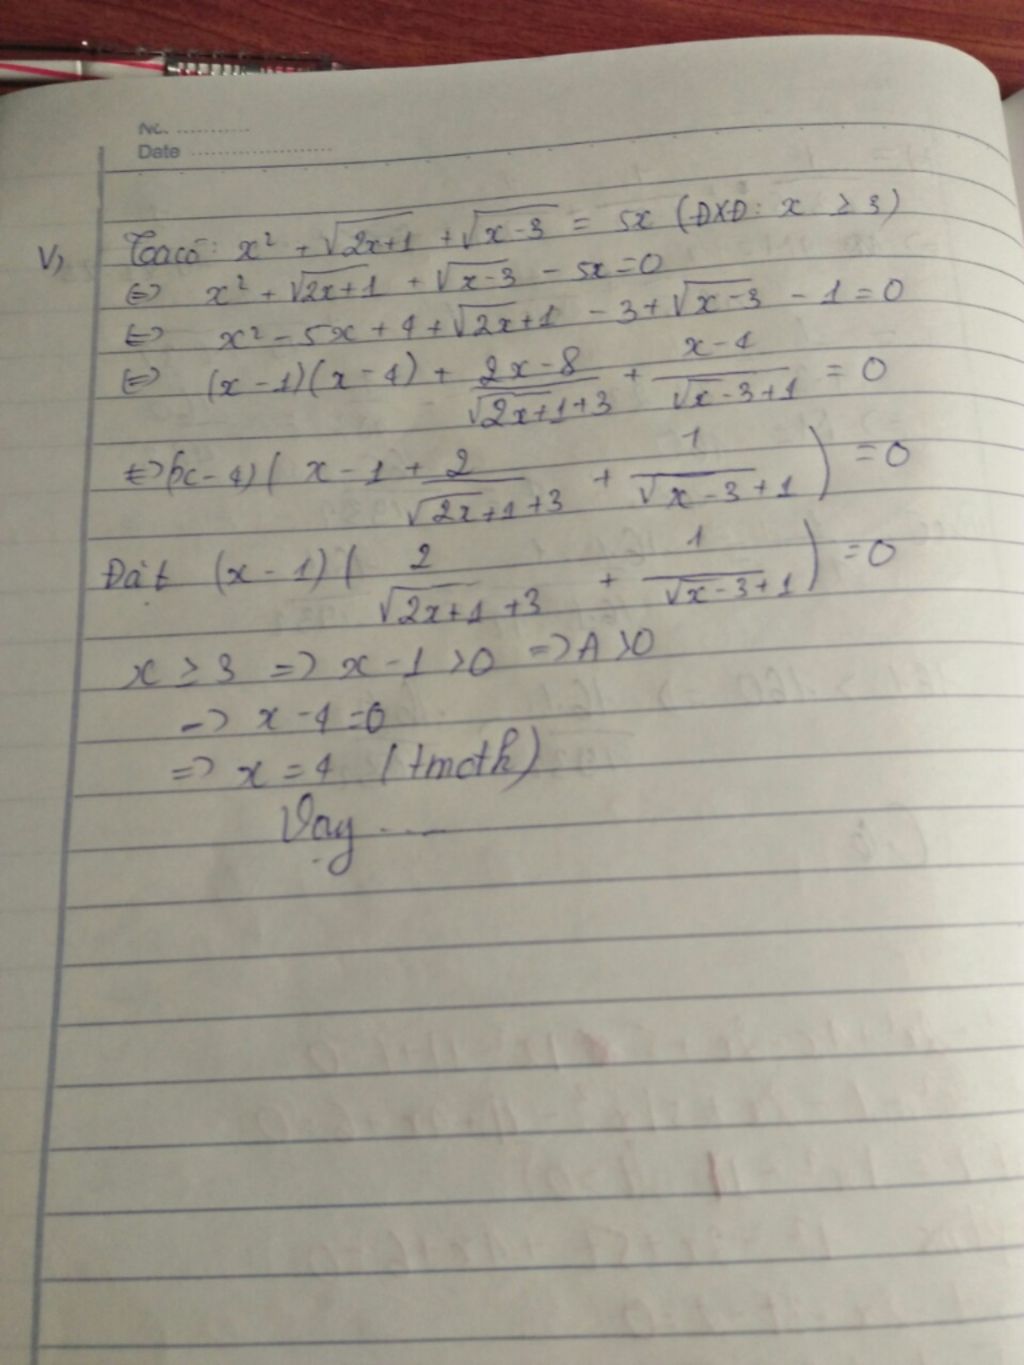 No. ............
Date ........................
V) Ta có: x² + √(2x+1) + √(x-3) = 5x (ĐXĐ: x ≥ 3)
⇔ x² + √(2x+1) + √(x-3) - 5x = 0
⇔ x² - 5x + 4 + √(2x+1) - 3 + √(x-3) - 1 = 0
⇔ (x-1)(x-4) + (2x-8)/(√(2x+1)+3) + (x-4)/(√(x-3)+1) = 0
⇔ (x-4)( x-1 + 2/(√(2x+1)+3) + 1/(√(x-3)+1) ) = 0
Đặt (x-1)( 2/(√(2x+1)+3) + 1/(√(x-3)+1) ) = 0
x ≥ 3 => x-1 >0 => A >0
-> x-4 =0
=> x = 4 (tmđk)
Vậy .....